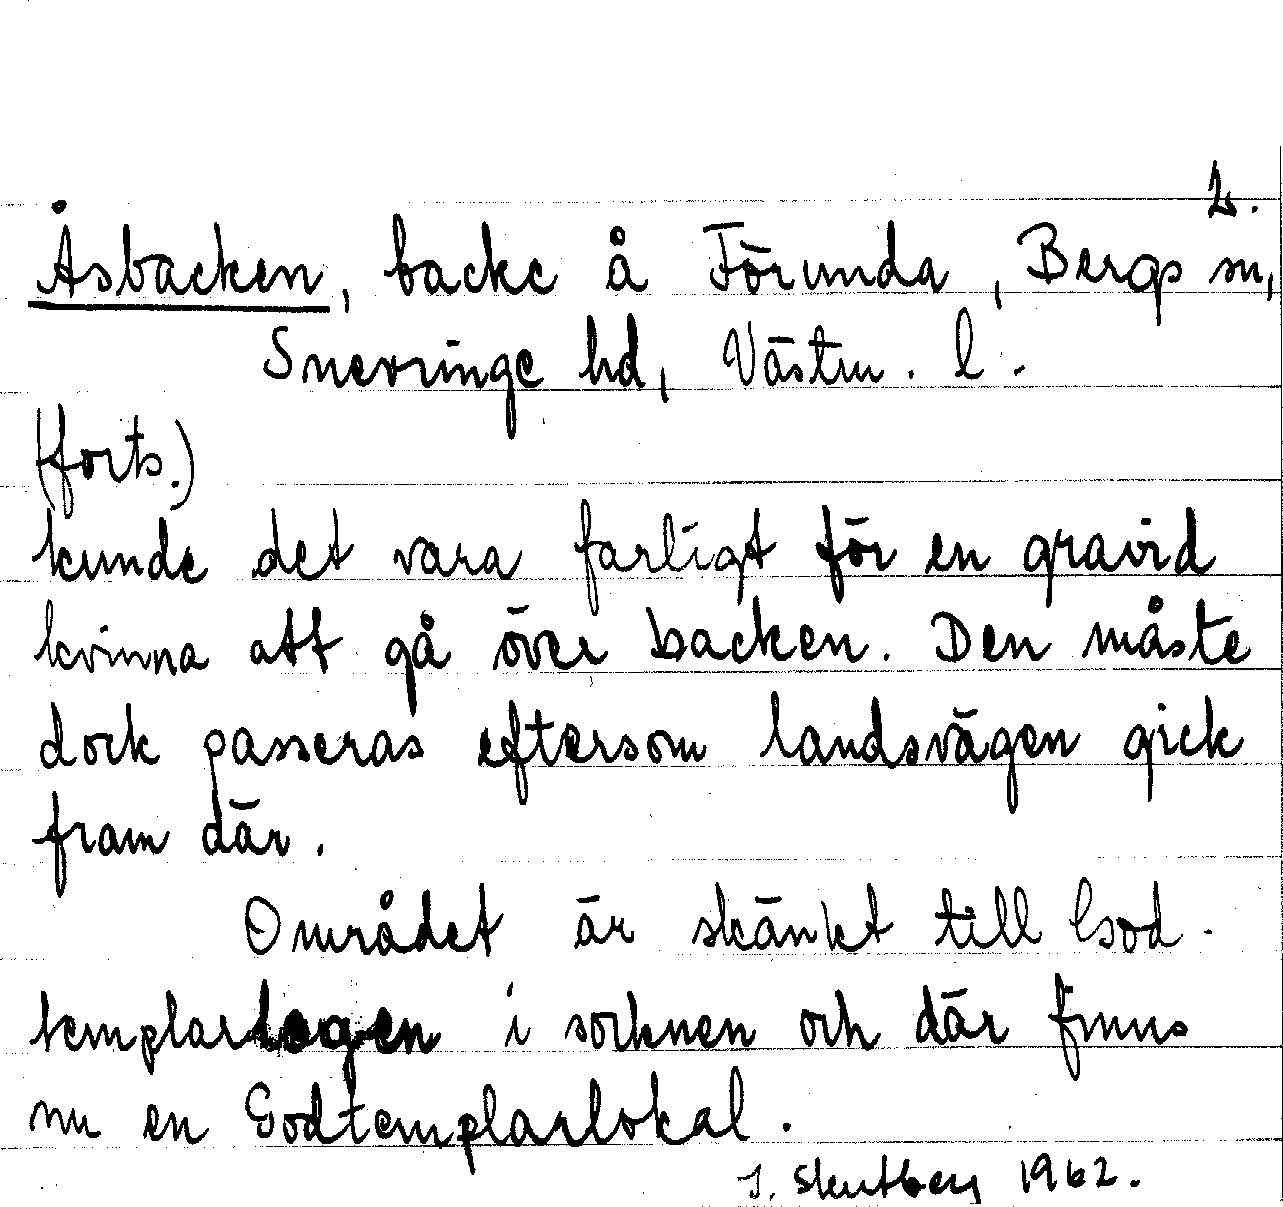 2.
Åsbacken, backe å Förunda, Bergs sn,
Snevringe hd, Västm. l.
(forts.)
kunde det vara farligt för en gravid
kvinna att gå över backen. Den måste
dock passeras eftersom landsvägen gick
fram där.
Området är skänkt till God-
templarlogen i socknen och där finns
nu en Godtemplarlokal.
J. Skutberg 1962.